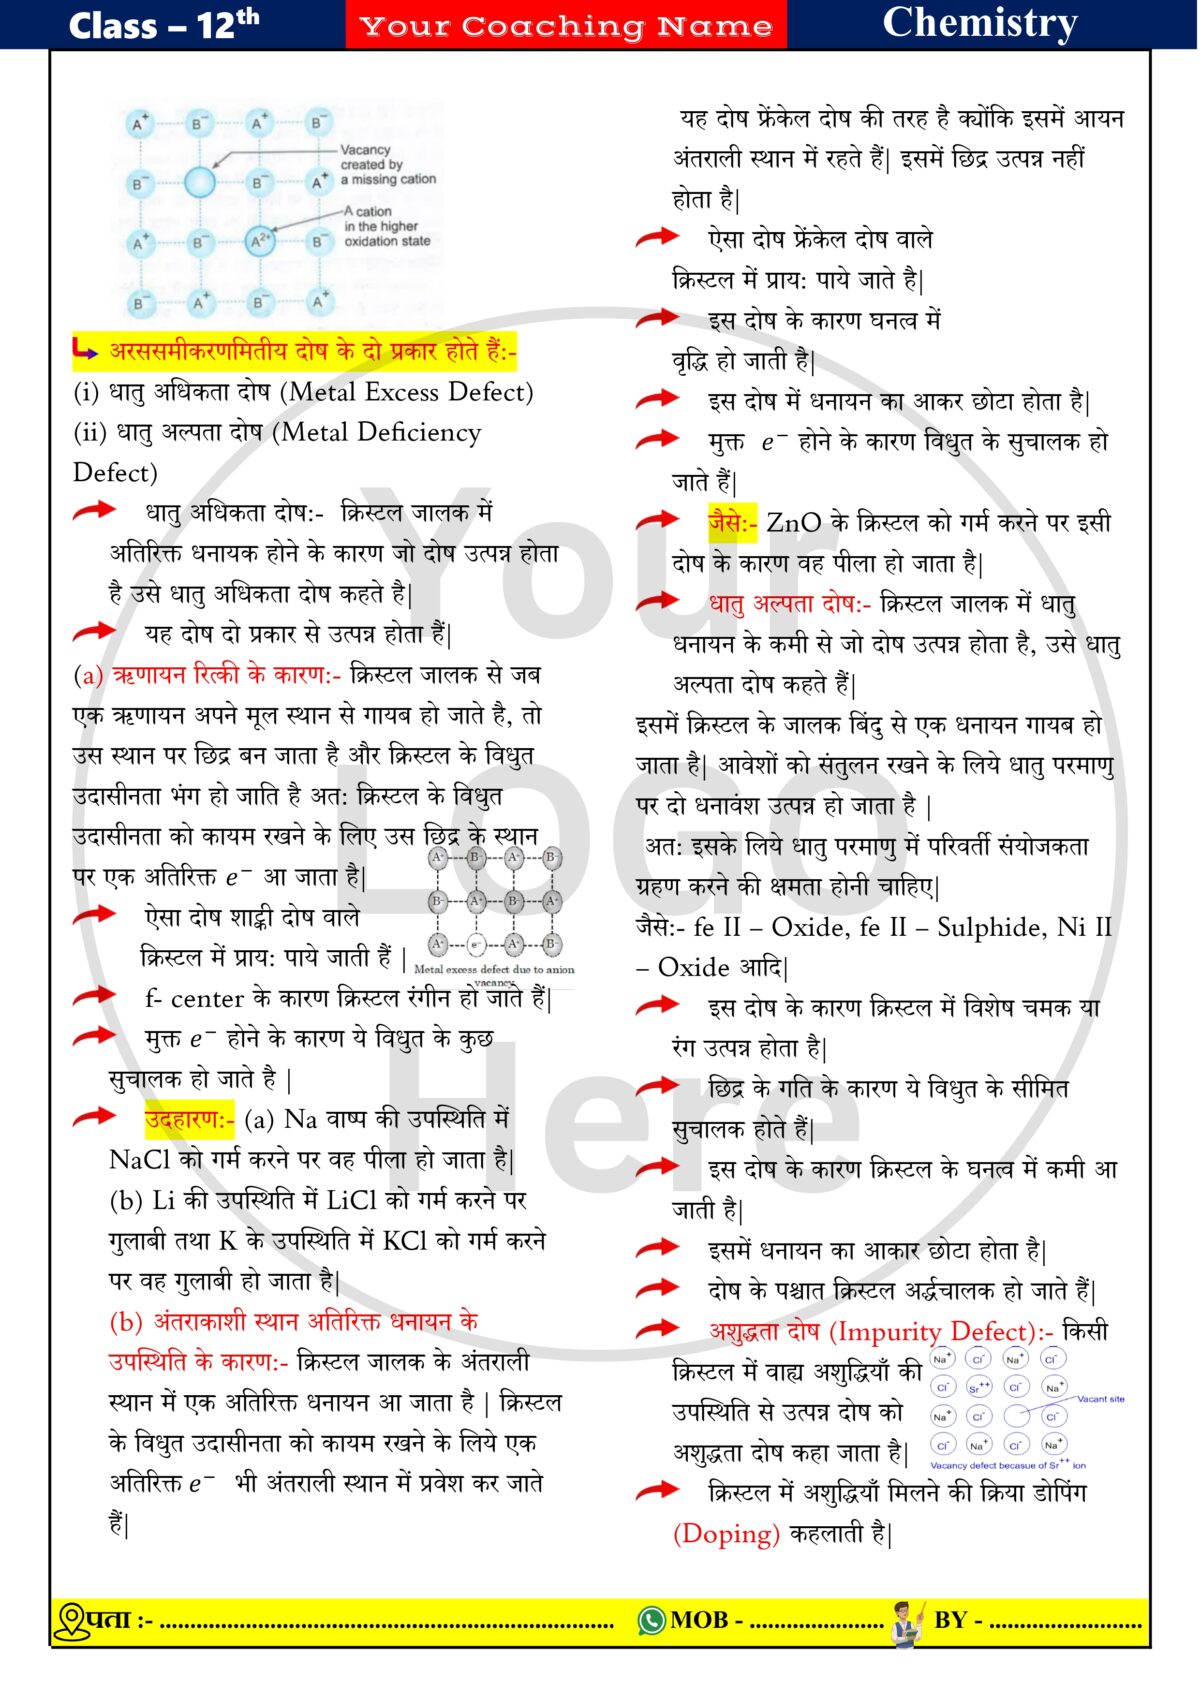 Class – 12th
Your Coaching Name
Chemistry
A+ B– A+ B–
Vacancy
created by
a missing cation
B– B– A+
A cation
in the higher
oxidation state
A+ B– A2+ B–
B– A+ B– A+
अरससमीकरणमितीय दोष के दो प्रकार होते हैं:-
(i) धातु अधिकता दोष (Metal Excess Defect)
(ii) धातु अल्पता दोष (Metal Deficiency
Defect)
धातु अधिकता दोष:- क्रिस्टल जालक में
अतिरिक्त धनायक होने के कारण जो दोष उत्पन्न होता
है उसे धातु अधिकता दोष कहते है|
यह दोष दो प्रकार से उत्पन्न होता हैं|
(a) ऋणायन रित्की के कारण:- क्रिस्टल जालक से जब
एक ऋणायन अपने मूल स्थान से गायब हो जाते है, तो
उस स्थान पर छिद्र बन जाता है और क्रिस्टल के विधुत
उदासीनता भंग हो जाति है अत: क्रिस्टल के विधुत
उदासीनता को कायम रखने के लिए उस छिद्र के स्थान
पर एक अतिरिक्त e− आ जाता है|
ऐसा दोष शाङ्की दोष वाले
क्रिस्टल में प्राय: पाये जाती हैं |
A+ B- A+ B-
B- A+ B- A+
A+ e- A+ B-
Metal excess defect due to anion
vacancy
f- center के कारण क्रिस्टल रंगीन हो जाते हैं|
मुक्त e− होने के कारण ये विधुत के कुछ
सुचालक हो जाते है |
उदहारण:- (a) Na वाष्प की उपस्थिति में
NaCl को गर्म करने पर वह पीला हो जाता है|
(b) Li की उपस्थिति में LiCl को गर्म करने पर
गुलाबी तथा K के उपस्थिति में KCl को गर्म करने
पर वह गुलाबी हो जाता है|
(b) अंतराकाशी स्थान अतिरिक्त धनायन के
उपस्थिति के कारण:- क्रिस्टल जालक के अंतराली
स्थान में एक अतिरिक्त धनायन आ जाता है | क्रिस्टल
के विधुत उदासीनता को कायम रखने के लिये एक
अतिरिक्त e− भी अंतराली स्थान में प्रवेश कर जाते
हैं|
यह दोष फ्रेंकेल दोष की तरह है क्योंकि इसमें आयन
अंतराली स्थान में रहते हैं| इसमें छिद्र उत्पन्न नहीं
होता है|
ऐसा दोष फ्रेंकेल दोष वाले
क्रिस्टल में प्राय: पाये जाते है|
इस दोष के कारण घनत्व में
वृद्धि हो जाती है|
इस दोष में धनायन का आकर छोटा होता है|
मुक्त e− होने के कारण विधुत के सुचालक हो
जाते हैं|
जैसे:- ZnO के क्रिस्टल को गर्म करने पर इसी
दोष के कारण वह पीला हो जाता है|
धातु अल्पता दोष:- क्रिस्टल जालक में धातु
धनायन के कमी से जो दोष उत्पन्न होता है, उसे धातु
अल्पता दोष कहते हैं|
इसमें क्रिस्टल के जालक बिंदु से एक धनायन गायब हो
जाता है| आवेशों को संतुलन रखने के लिये धातु परमाणु
पर दो धनावंश उत्पन्न हो जाता है |
अत: इसके लिये धातु परमाणु में परिवर्ती संयोजकता
ग्रहण करने की क्षमता होनी चाहिए|
जैसे:- fe II – Oxide, fe II – Sulphide, Ni II
– Oxide आदि|
इस दोष के कारण क्रिस्टल में विशेष चमक या
रंग उत्पन्न होता है|
छिद्र के गति के कारण ये विधुत के सीमित
सुचालक होते हैं|
इस दोष के कारण क्रिस्टल के घनत्व में कमी आ
जाती है|
इसमें धनायन का आकार छोटा होता है|
दोष के पश्चात क्रिस्टल अर्द्धचालक हो जाते हैं|
अशुद्धता दोष (Impurity Defect):- किसी
क्रिस्टल में वाह्य अशुद्धियाँ की
उपस्थिति से उत्पन्न दोष को
अशुद्धता दोष कहा जाता है|
Na+ Cl- Na+ Cl-
Cl- Sr++ Cl- Na+
Vacant site
Na+ Cl- Cl-
Cl- Na+ Cl- Na+
Vacancy defect becasue of Sr++ ion
क्रिस्टल में अशुद्धियाँ मिलने की क्रिया डोपिंग
(Doping) कहलाती है|
Your
LOGO
Here
पता :- ............................................................................
MOB - ......................
BY - .........................